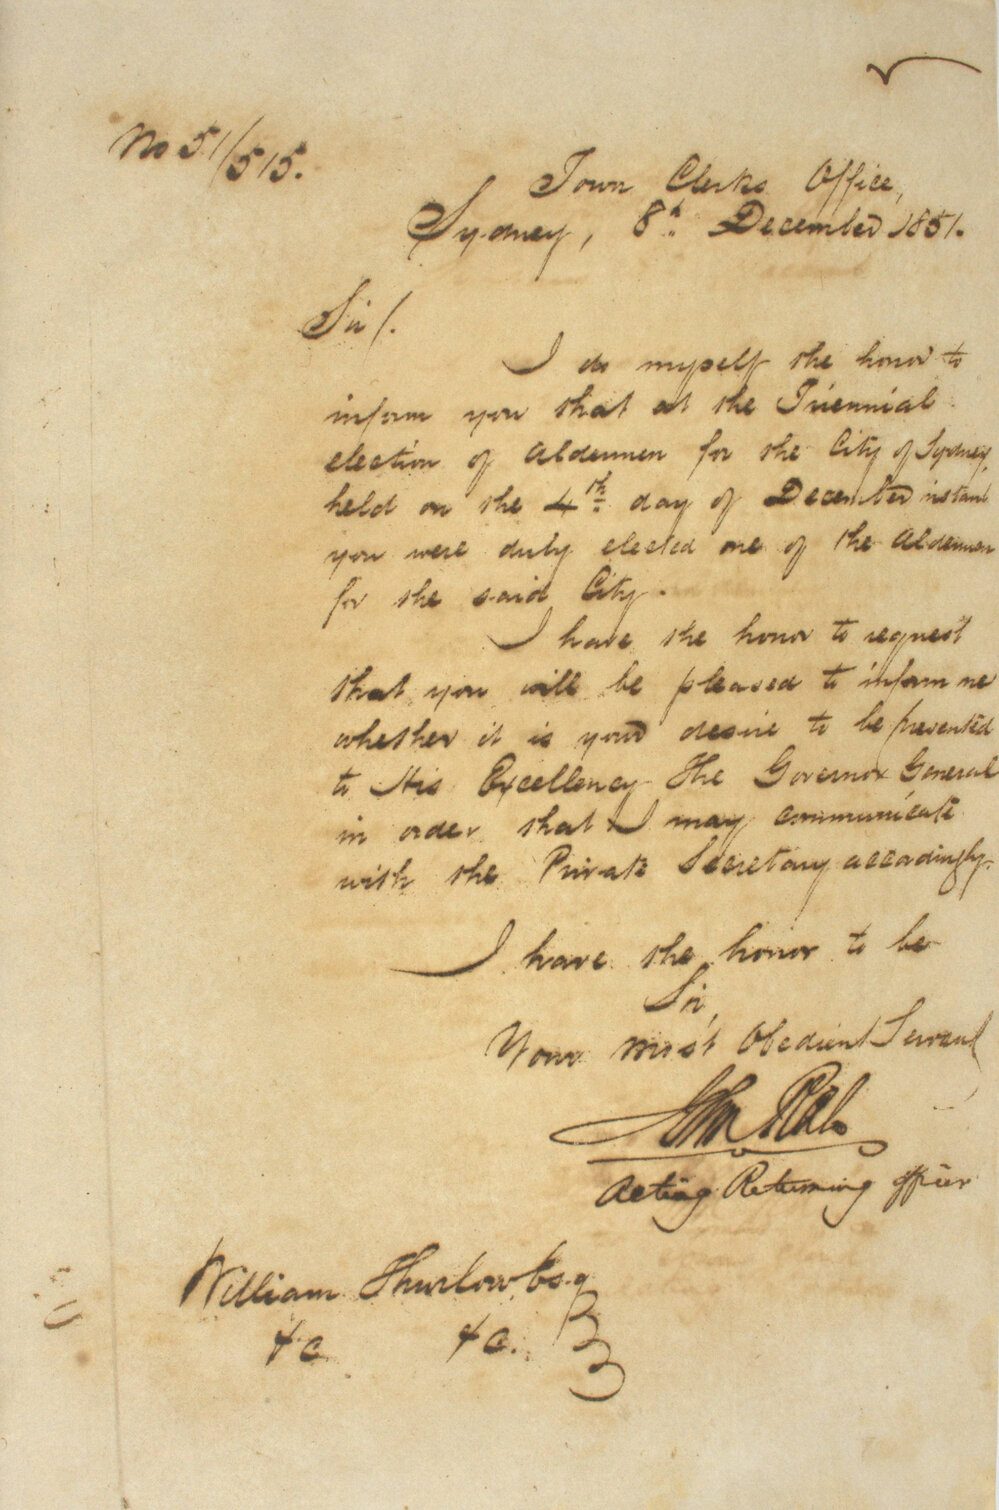 No 51/515.
Town Clerks Office,
Sydney, 8th December 1851.
Sir/.
I do myself the honor to
inform you that at the Triennial
election of Aldermen for the City of Sydney,
held on the 4th day of December instant
you were duly elected one of the Aldermen
for the said City.
I have the honor to request
that you will be pleased to inform me
whether it is your desire to be presented
to His Excellency The Governor General
in order that I may communicate
with the Private Secretary accordingly.
I have the honor to be
Sir,
Your most Obedient Servant
John
Acting Returning Officer
William Thurlow Esq
&c &c.